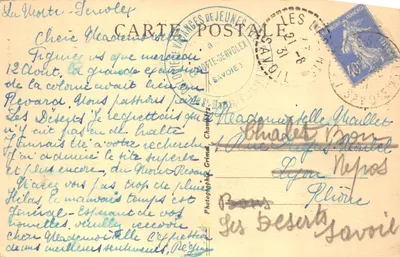 La Motte-Servolex
CARTE POSTALE
Chère Mademoiselle
Figurez vous que mercredi
12 Août, la grande excursion
de la colonie avait lieu au
Revard. Nous passions par
Les Déserts. Je regrettais qu'il
n'y ait pas eu de halte
J'aurais été à votre recherche
J'ai admiré le site superbe
et plus encore, du Mont-Revard
N'avez vous pas trop de pluie
Hélas, le mauvais temps est
général - Espérant de vos
nouvelles, veuillez recevoir
chère Mademoiselle l'expression
de mes meilleurs sentiments,
COLONIE DE VACANCES DE JEUNES
MOTTE-SERVOLEX
(SAVOIE)
21-8
31
SAVOIE
Photographie Grimal, Chambéry
Mademoiselle Maillet
Chalet Bon
Repos
Lyon
Rhône
Bons
Les Déserts
Savoie